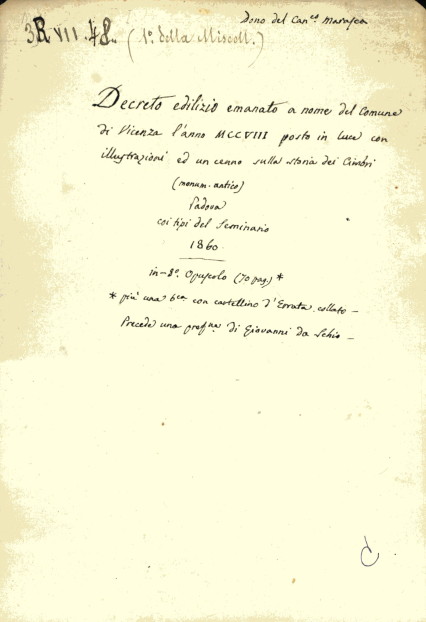 Dono del Can.co Marasca
3R VII 48. (1º. della Miscell.)
Decreto edilizio emanato a nome del Comune
di Vicenza l'anno MCCVIII posto in luce con
illustrazioni ed un cenno sulla storia dei Cimbri
(monum. antico)
Padova
coi tipi del Seminario
1860.
in-8º. Opuscolo (70 pag.) *
* più una 6ª con cartellino d'Errata collato –
Precede una prefne. di Giovanni da Schio –